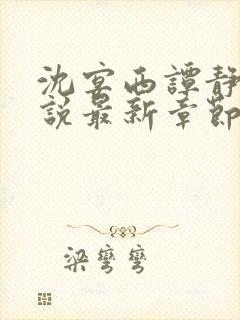 沈宴西譚靜
說最新章節
梁彎彎